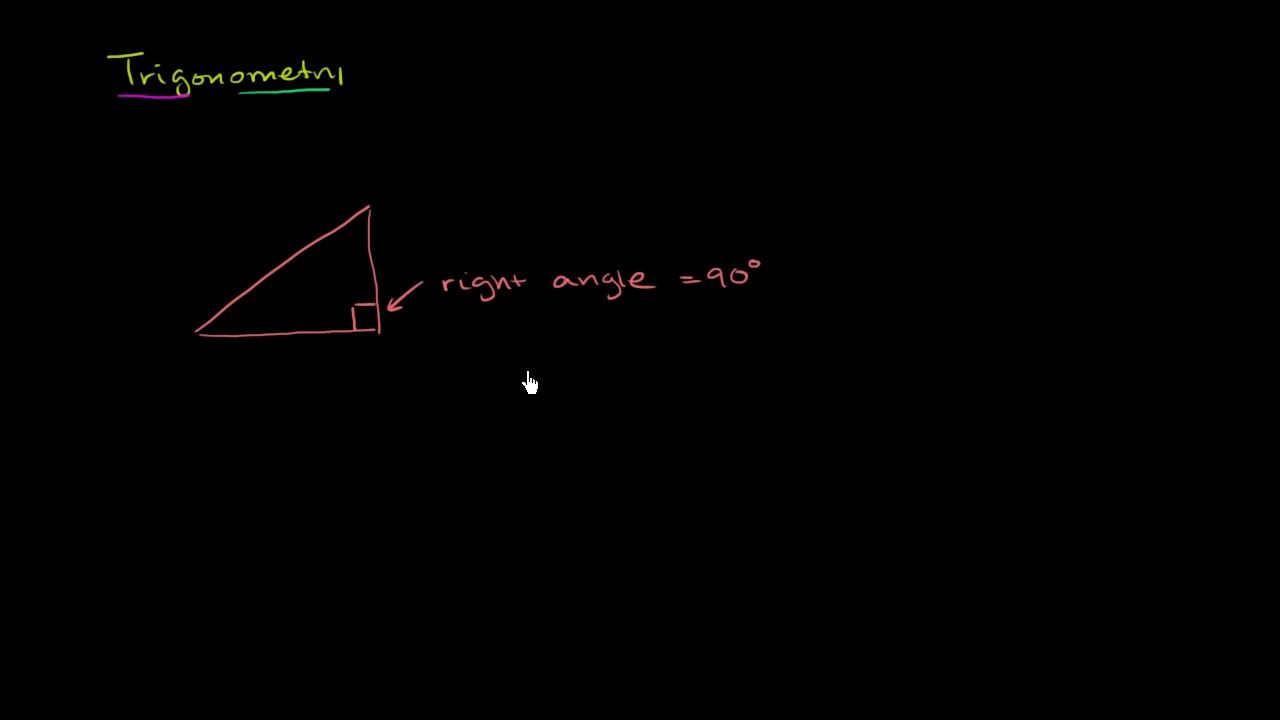 Trigonometry
right angle = 90°